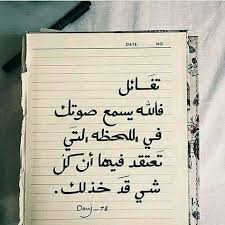 DATE NO
تفائل
فالله يسمع صوتك
في اللحظه التي
تعتقد فيها أن كل
شي قد خذلك.